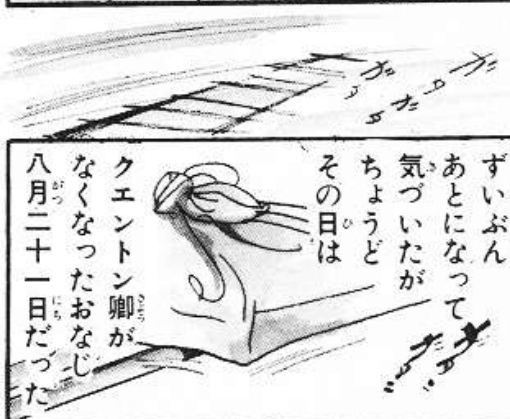 ずいぶん
あとになって
気づいたが
ちょうど
その日は
クエントン卿が
なくなったおなじ
八月二十一日だった